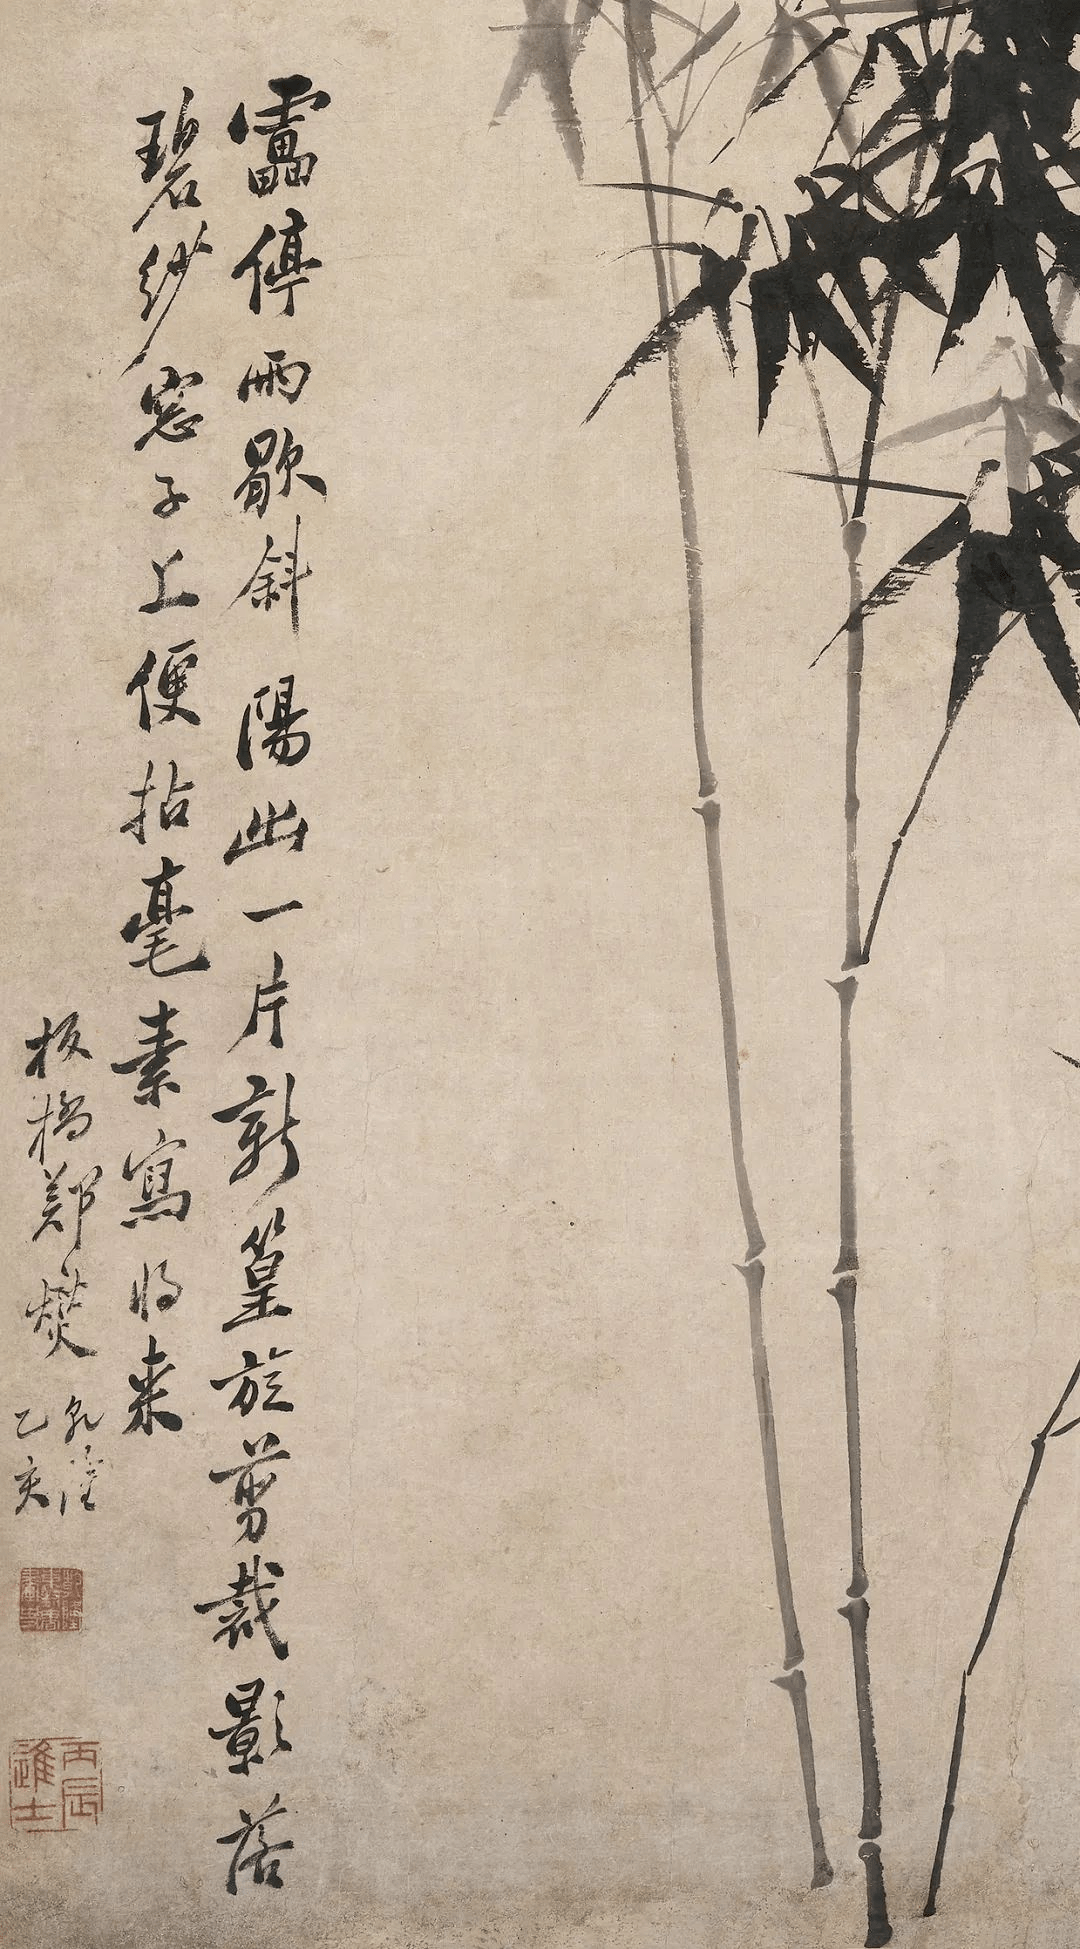 靁停雨歇斜陽出一片新篁旋剪裁影落
碧紗窓子上便拈毫素寫將来
板橋鄭燮
乾隆
乙亥
丙辰進士